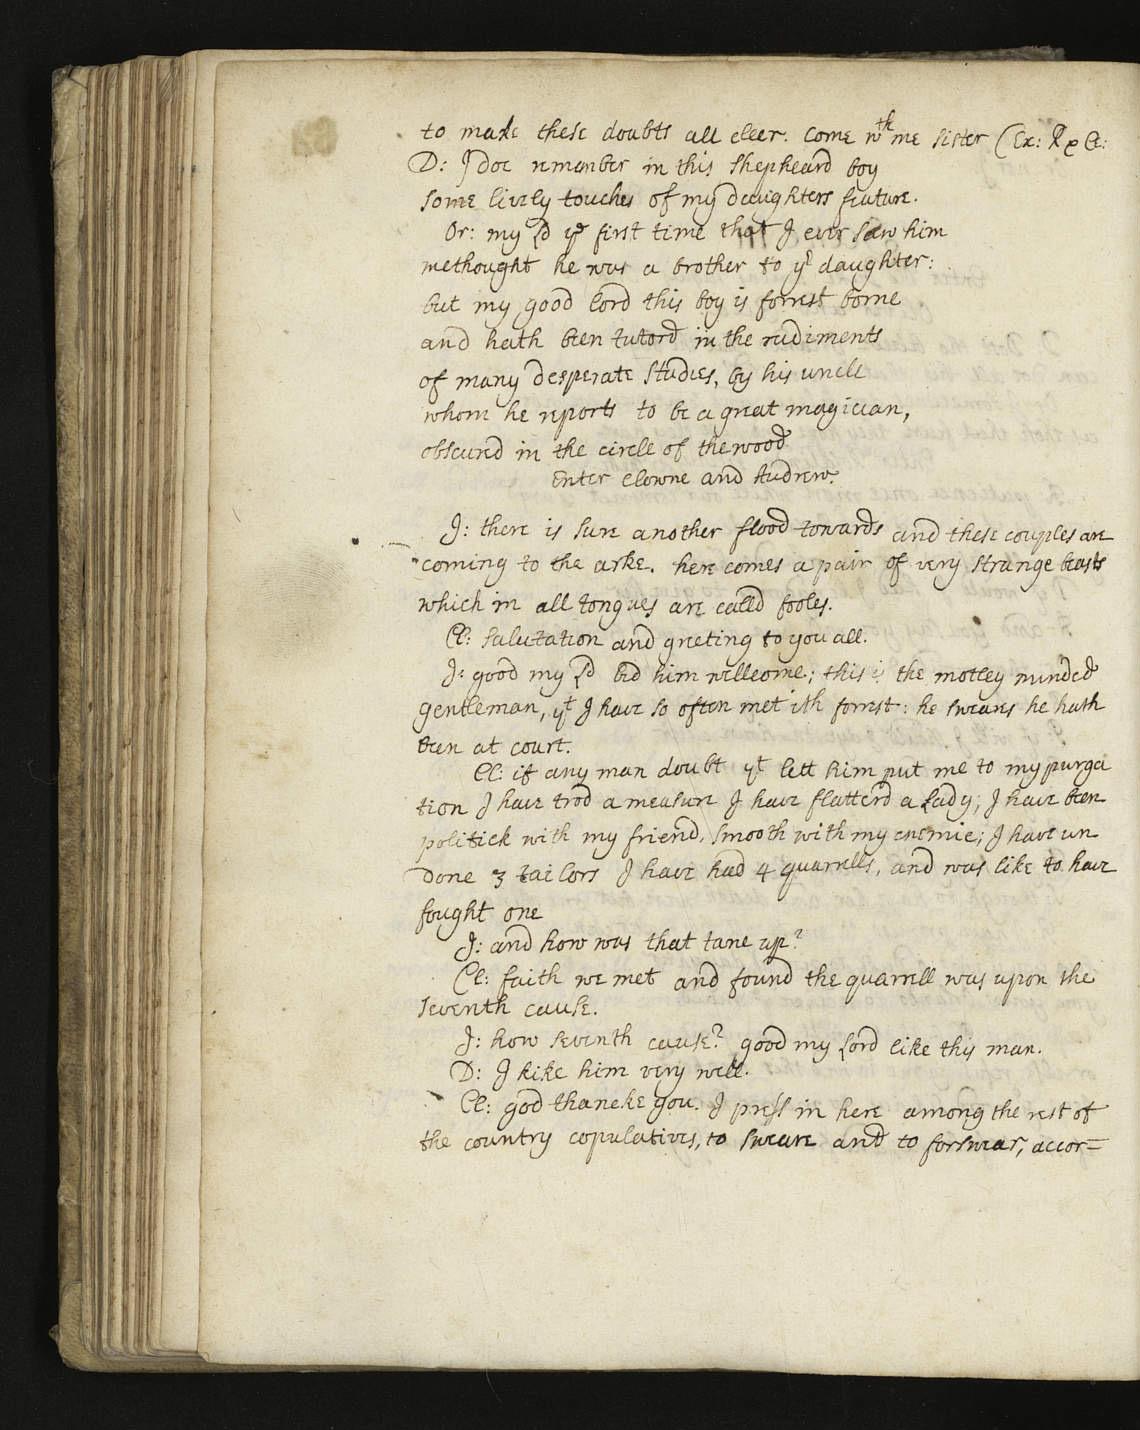 to make these doubts all cleer. come wth me sister (Ex: R & Ce:
D: I doe remember in this shepheard boy
some lively touches of my daughters feature.
Or: my Ld ye first time that I ever saw him
methought he was a brother to yr daughter:
but my good lord this boy is forrest borne
and hath been tutord in the rudiments
of many desperate studies, by his uncle
whom he reports to be a great magician,
obscured in the circle of the wood
Enter Clowne and Audrew.
J: there is sure another flood towards and these couples are
coming to the arke. here comes a pair of very strange beasts
which in all tongues are calld fooles.
Cl: salutation and greeting to you all.
J: good my Ld bid him wellcome; this is the motley minded
gentleman, yt I have so often met ith forrest: he sweares he hath
been at court.
Cl: if any man doubt yt lett him put me to my purga
tion I have trod a measure I have flatterd a Lady; I have been
politick with my friend, smooth with my enemie; I have un
done 3 tailors I have had 4 quarrells, and was like to have
fought one
J: and how was that tane up?
Cl: faith we met and found the quarrell was upon the
seventh cause.
J: how seventh cause? good my Lord like this man.
D: I like him very well.
Cl: god thaneke you. I press in here among the rest of
the country copulatives, to sweare and to forswear, accor=